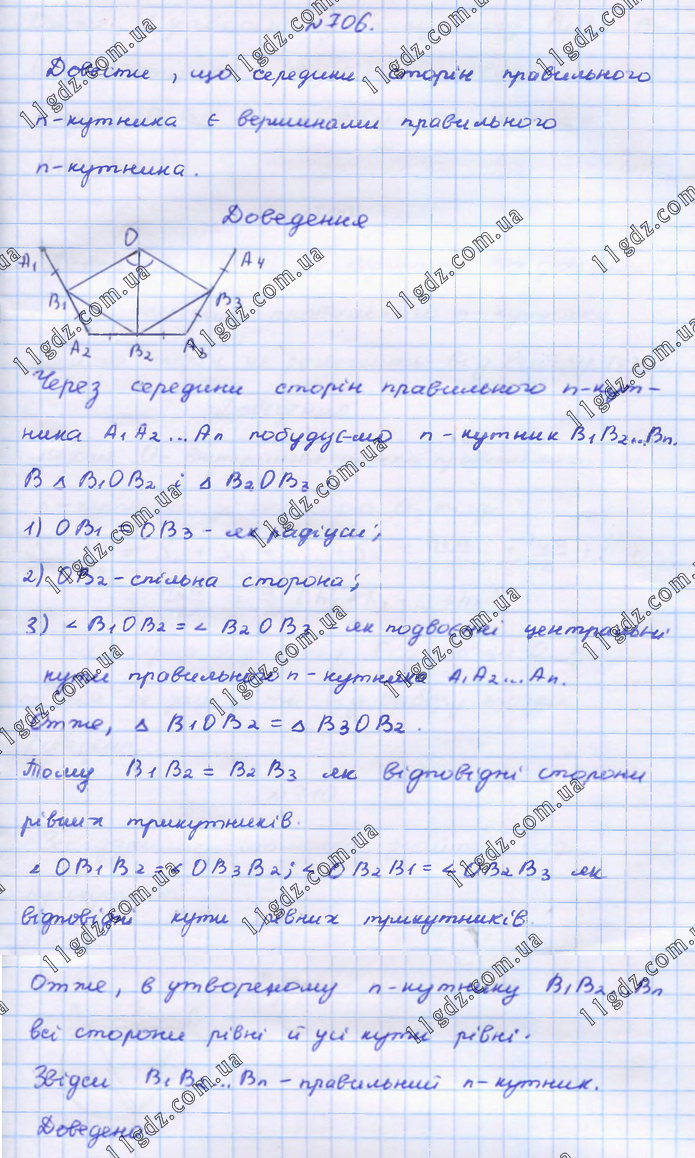 №706.
Довести, що середини сторін правильного
n-кутника є вершинами правильного
n-кутника.
Доведення
O
A1 A4
B1 B3
A2 B2 A3
Через середини сторін правильного n-кут-
ника A1A2...An побудуємо n-кутник B1B2...Bn.
В △ B1OB2 і △ B2OB3 :
1) OB1 = OB3 - як радіуси;
2) OB2 - спільна сторона;
3) ∠ B1OB2 = ∠ B2OB3 - як подвоєні центральні
кути правильного n-кутника A1A2...An.
Отже, △ B1OB2 = △ B3OB2.
Тому B1B2 = B2B3 як відповідні сторони
рівних трикутників.
∠ OB1B2 = ∠ OB3B2; ∠ OB2B1 = ∠ OB2B3 як
відповідні кути рівних трикутників
Отже, в утвореному n-кутнику B1B2...Bn
всі сторони рівні й усі кути рівні.
Звідси B1B2...Bn - правильний n-кутник.
Доведено
11gdz.com.ua